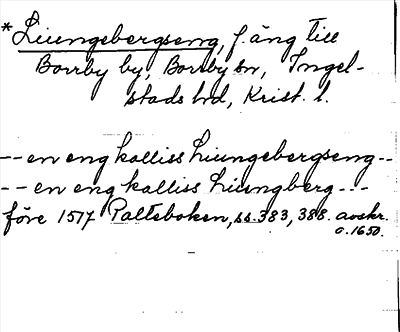 *Liungebergseng, f. äng till
Borrby by, Borrby sn, Ingel-
stads hd, Krist. l.
-- en eng kalliss Liungebergseng --
-- en eng kalliss Liungberg ---
före 1577 Palteboken, ss. 383, 388. avskr.
o. 1650.